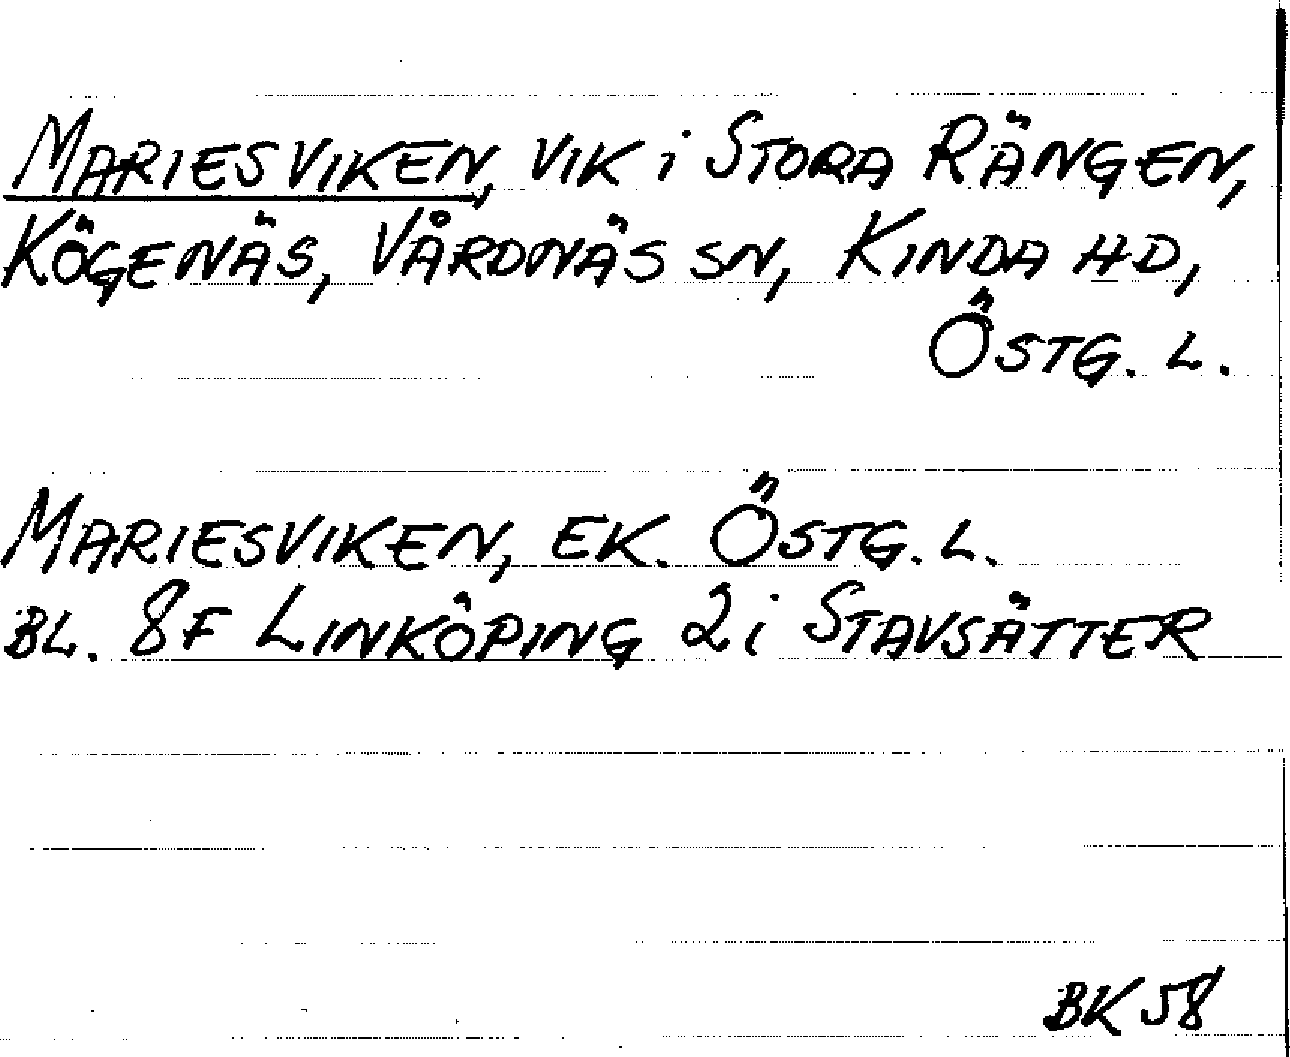 MARIESVIKEN, VIK i STORA RÄNGEN,
KÖGENÄS, VÅRDNÄS SN, KINDA HD,
ÖSTG. L.
MARIESVIKEN, EK. ÖSTG. L.
BL. 8F LINKÖPING 2i STAVSÄTTER
BK 58